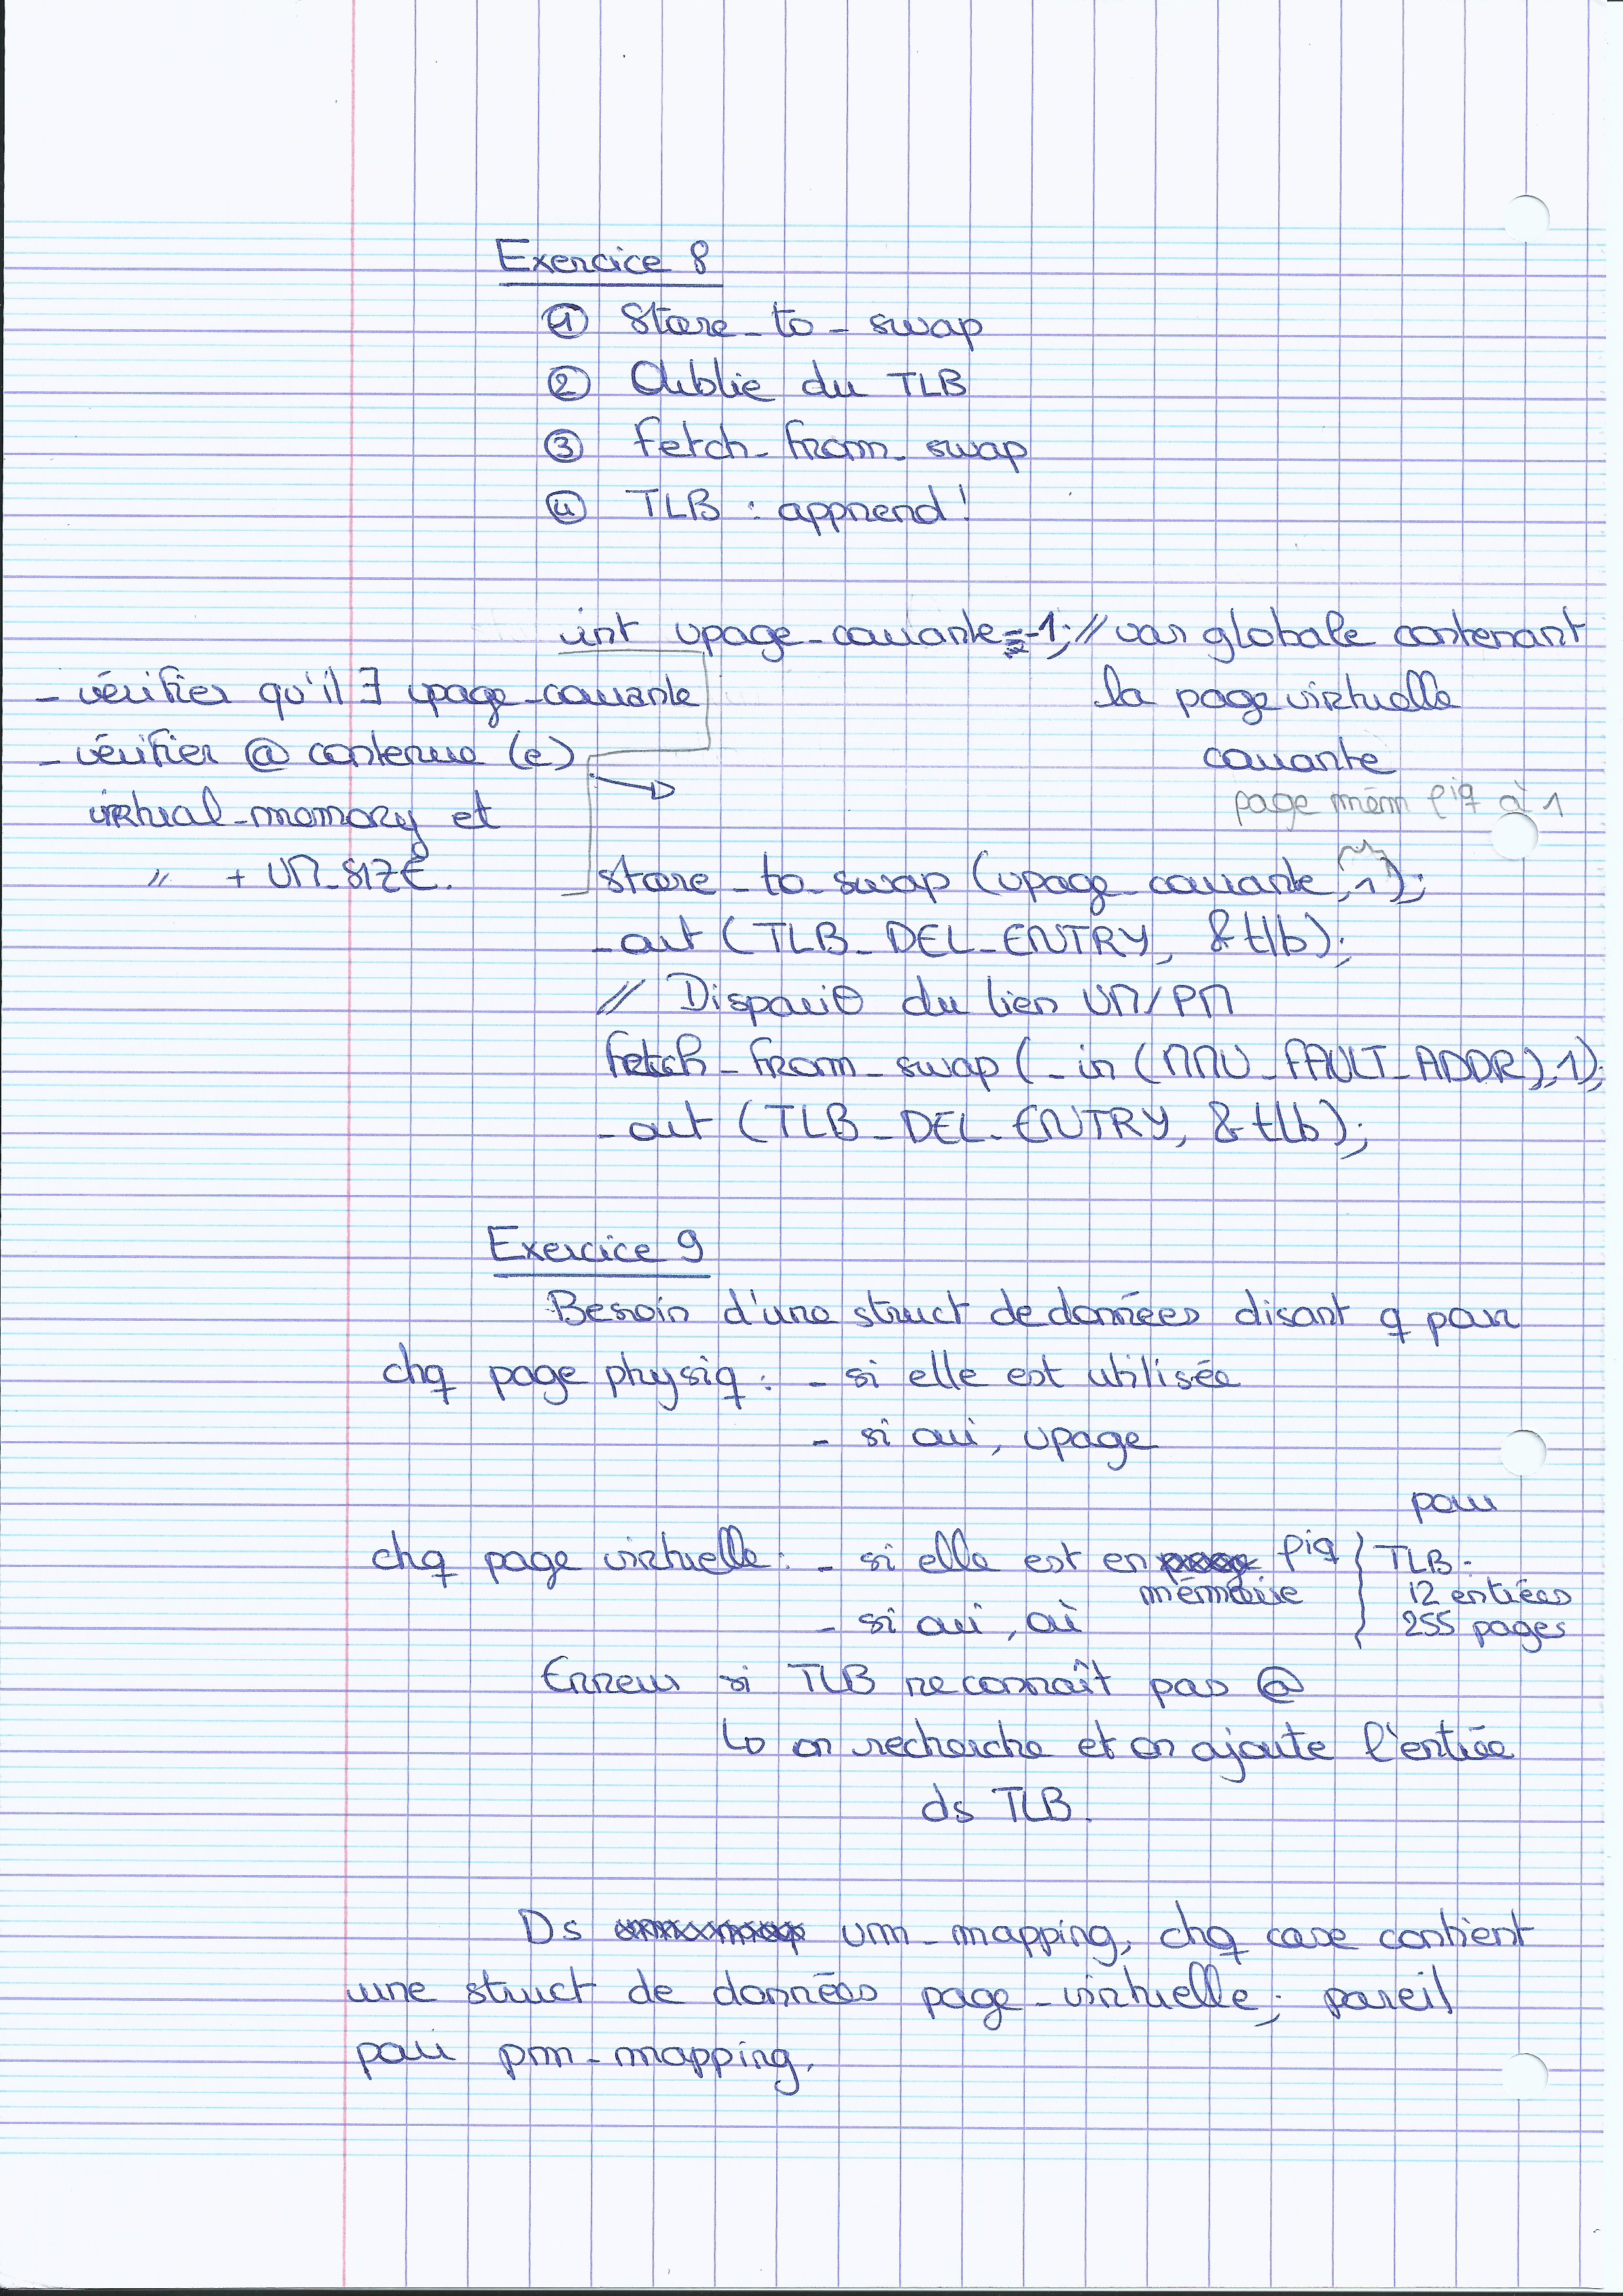 Exercice 8
① Store_to_swap
② Oublie du TLB
③ fetch_from_swap
④ TLB : apprend !
int vpage_courante = -1; // var globale contenant
la page virtuelle
courante
- vérifier qu'il ∃ vpage_courante
- vérifier @ contenue (e)
virtual_memory et
〃 + VM_SIZE.
page mém Φiq à 1
store_to_swap (vpage_courante, 1);
_out (TLB_DEL_ENTRY, &tlb);
// Disparit° du lien VM/PM
fetch_from_swap (_in (MMU_FAULT_ADDR), 1);
_out (TLB_DEL_ENTRY, &tlb);
Exercice 9
Besoin d'une struct de données disant q pour
chq page physiq : - si elle est utilisée
- si oui, vpage
chq page virtuelle : - si elle est en mémoire Φiq
- si oui, où
pour
TLB :
12 entrées
255 pages
Erreur si TLB ne connaît pas @
↳ on recherche et on ajoute l'entrée
ds TLB.
Ds vm_mapping, chq case contient
une struct de données page_virtuelle ; pareil
pour pm_mapping.